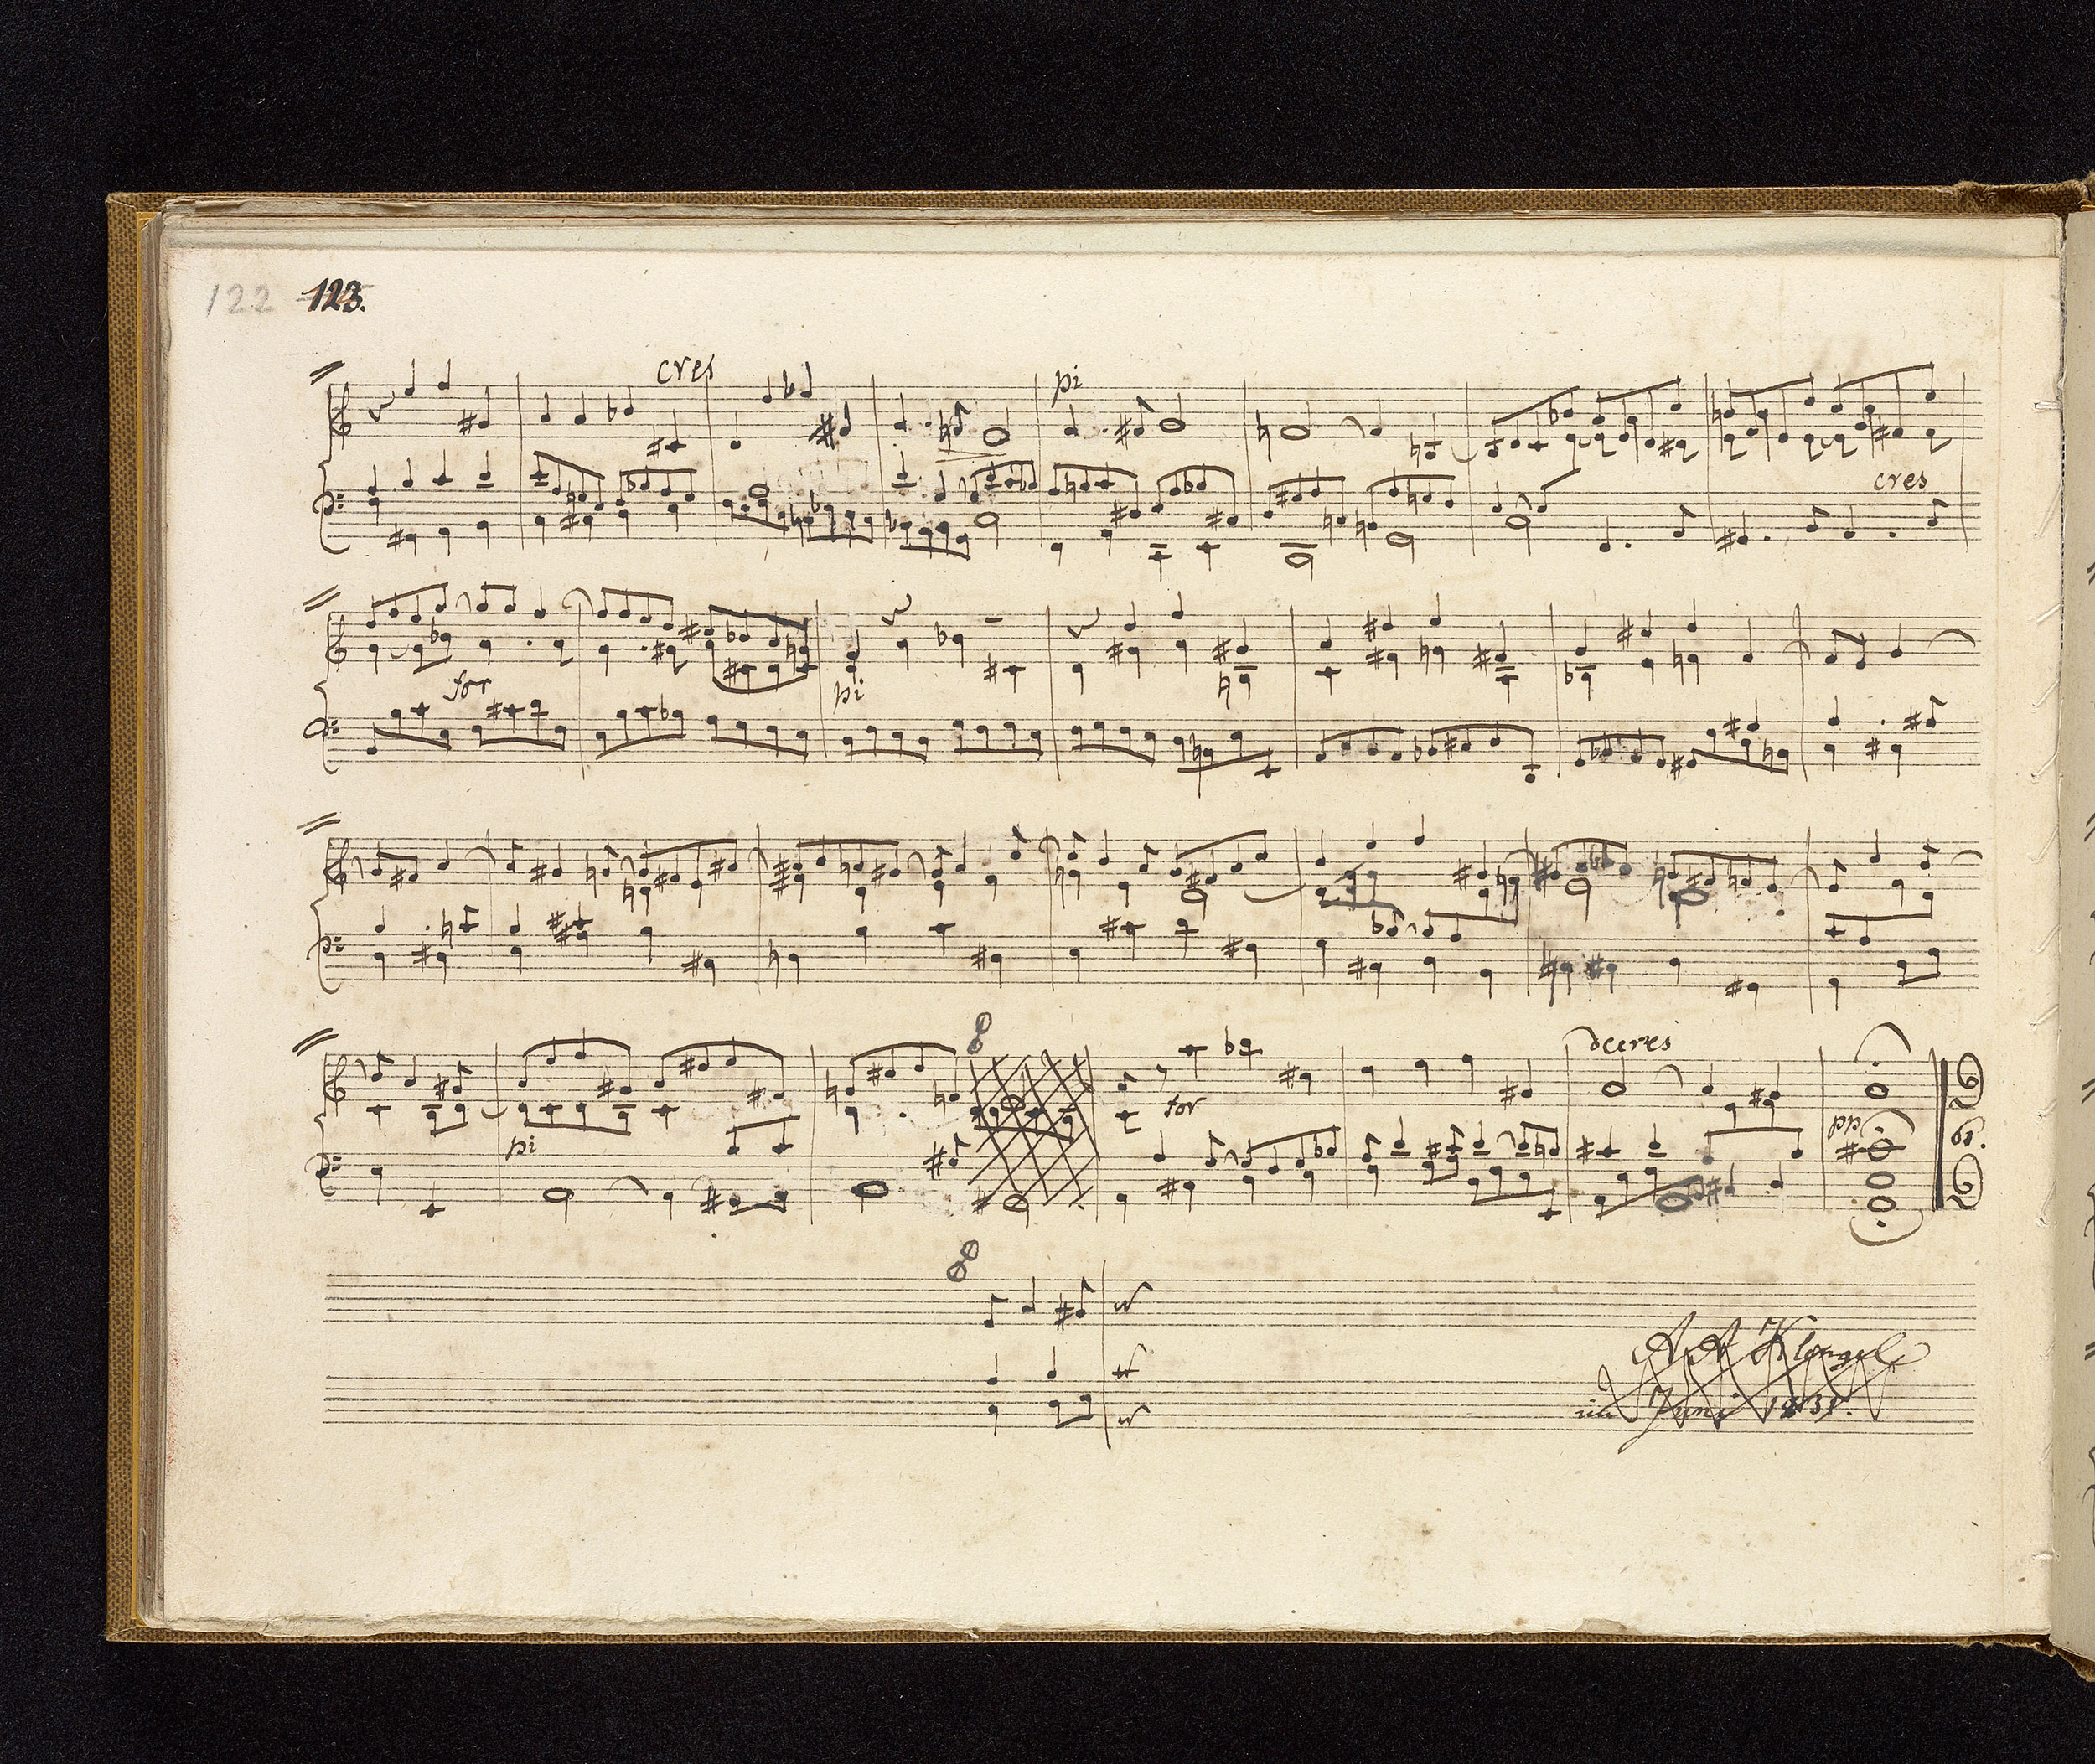 122 123.
cres
pi
cres
for
pi
pi
for
decres
pp
A A Klengel
im Juni 1831.